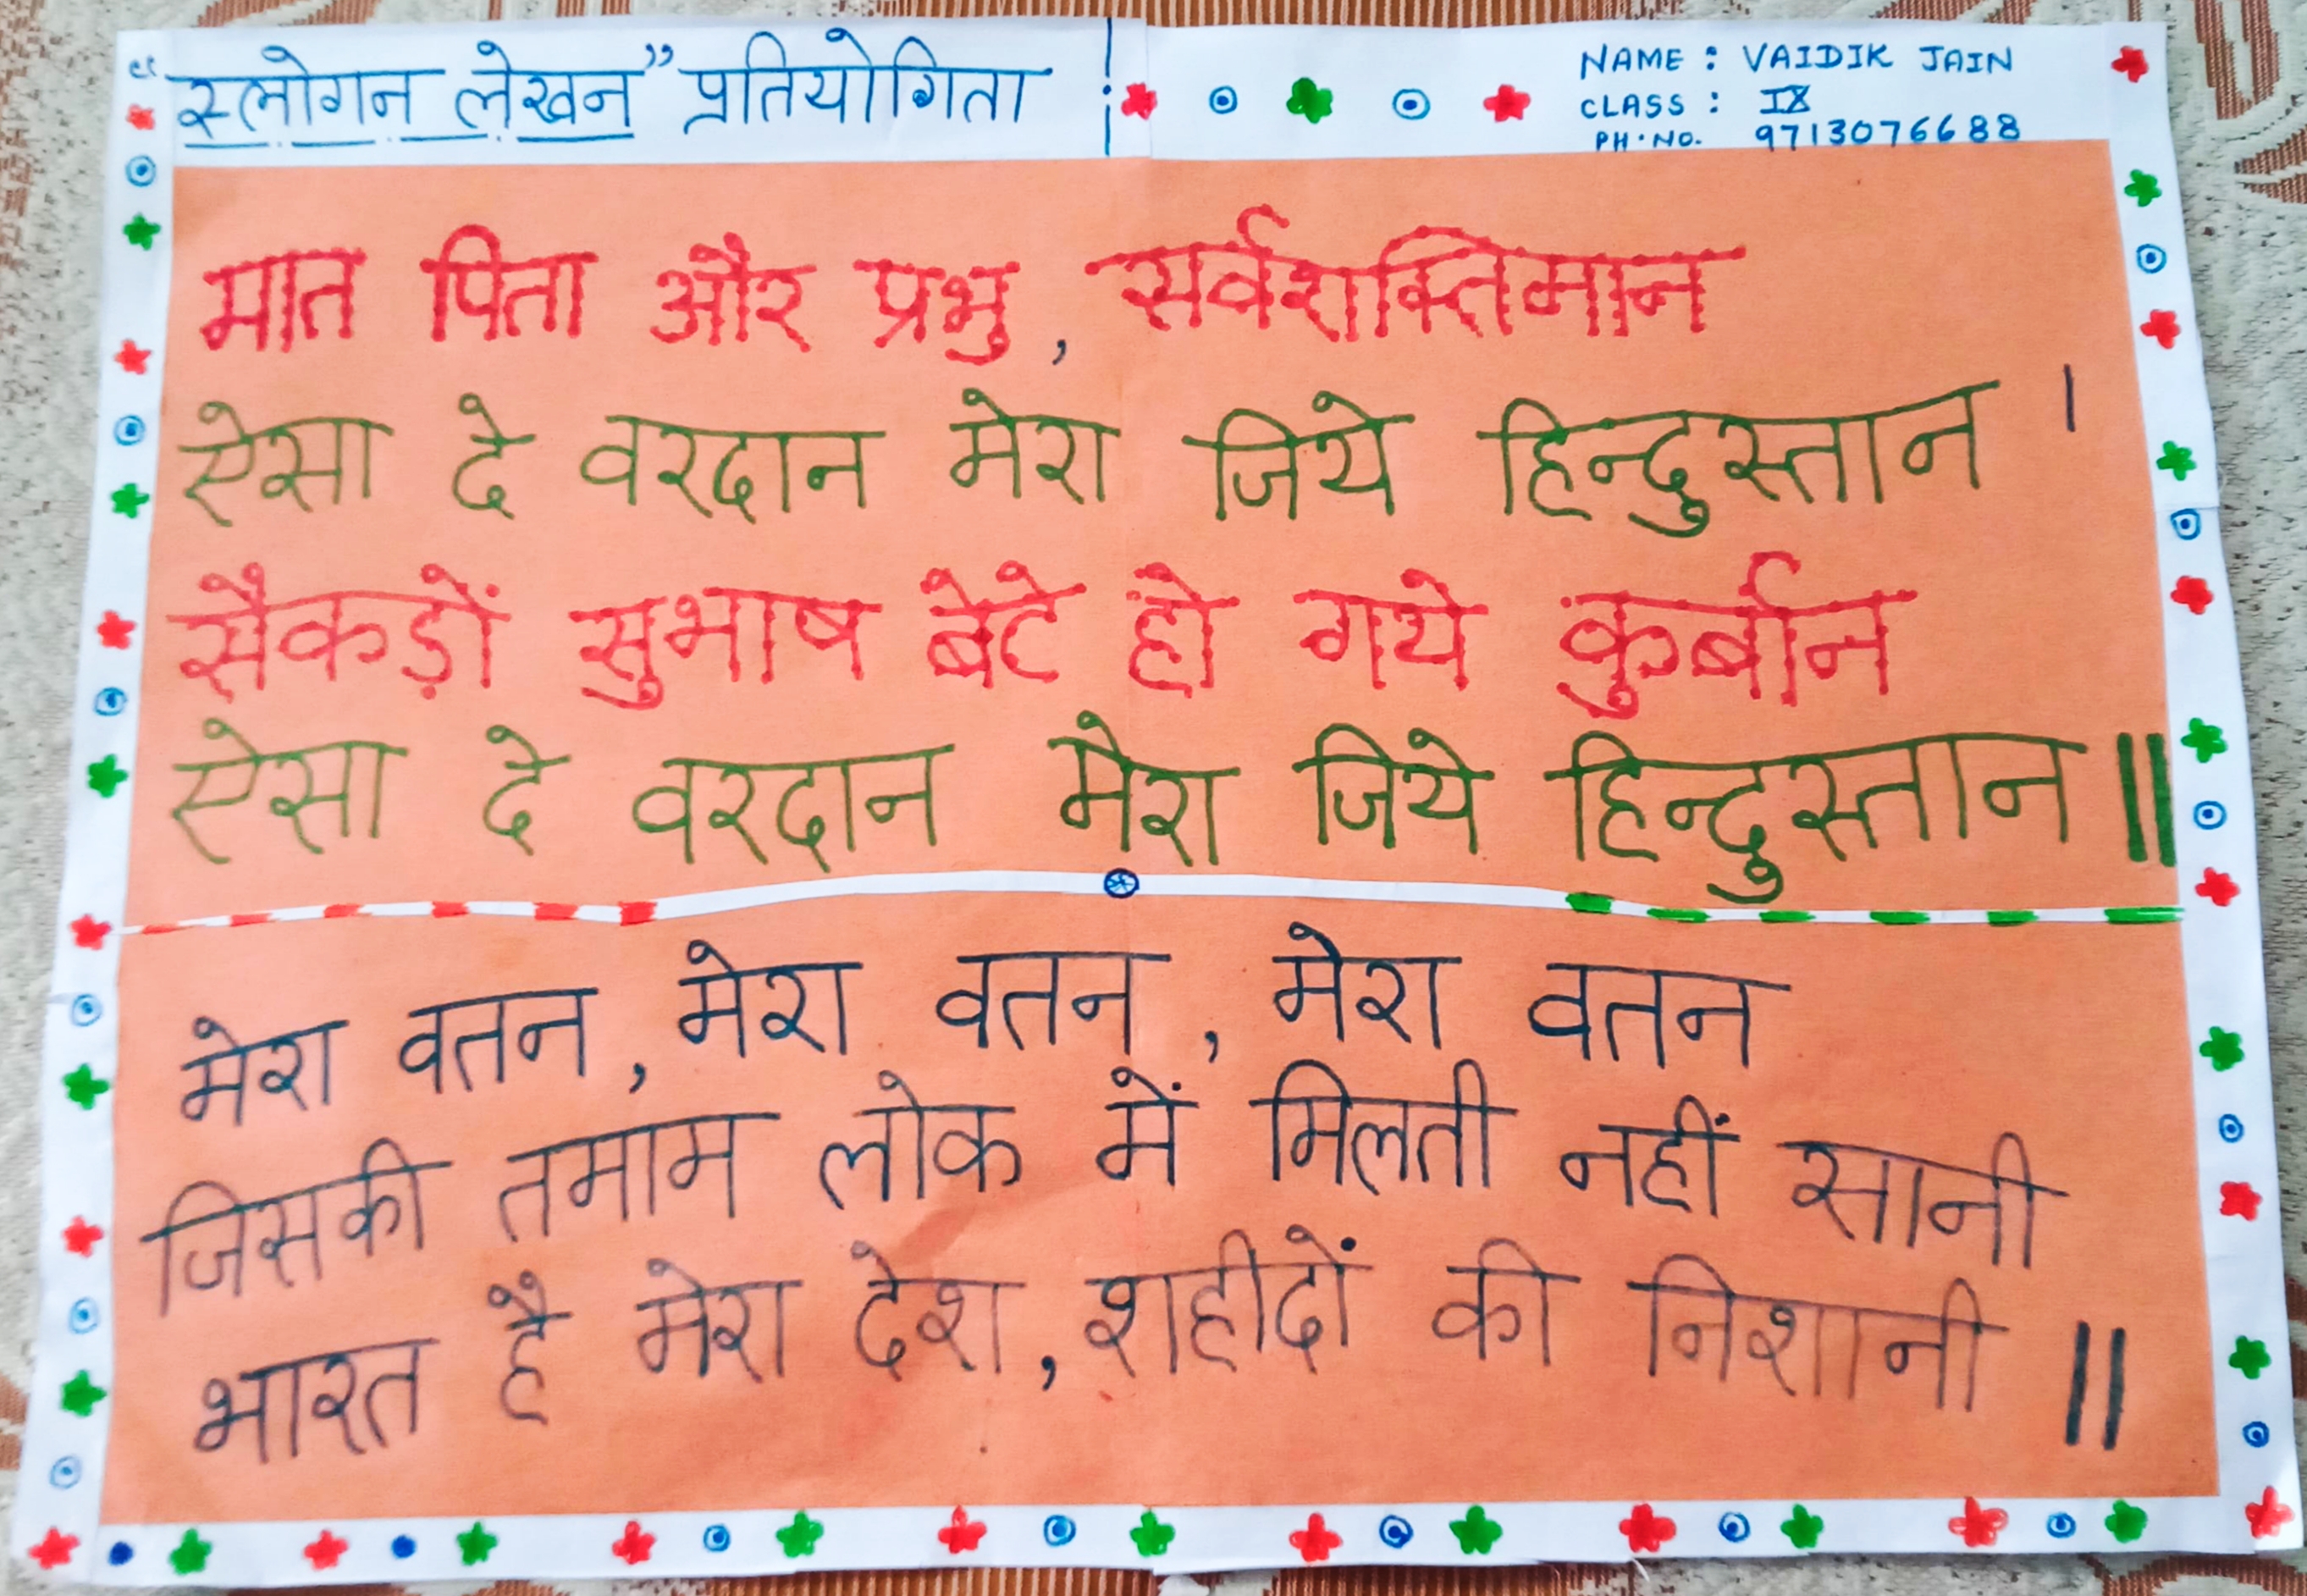 "स्लोगन लेखन" प्रतियोगिता
NAME : VAIDIK JAIN
CLASS : IX
PH.NO. 9713076688
मात पिता और प्रभु, सर्वशक्तिमान
ऐसा दे वरदान मेरा जिये हिन्दुस्तान ।
सैकड़ों सुभाष बेटे हो गये कुर्बान
ऐसा दे वरदान मेरा जिये हिन्दुस्तान ॥
मेरा वतन, मेरा वतन, मेरा वतन
जिसकी तमाम लोक में मिलती नहीं सानी
भारत है मेरा देश, शहीदों की निशानी ॥